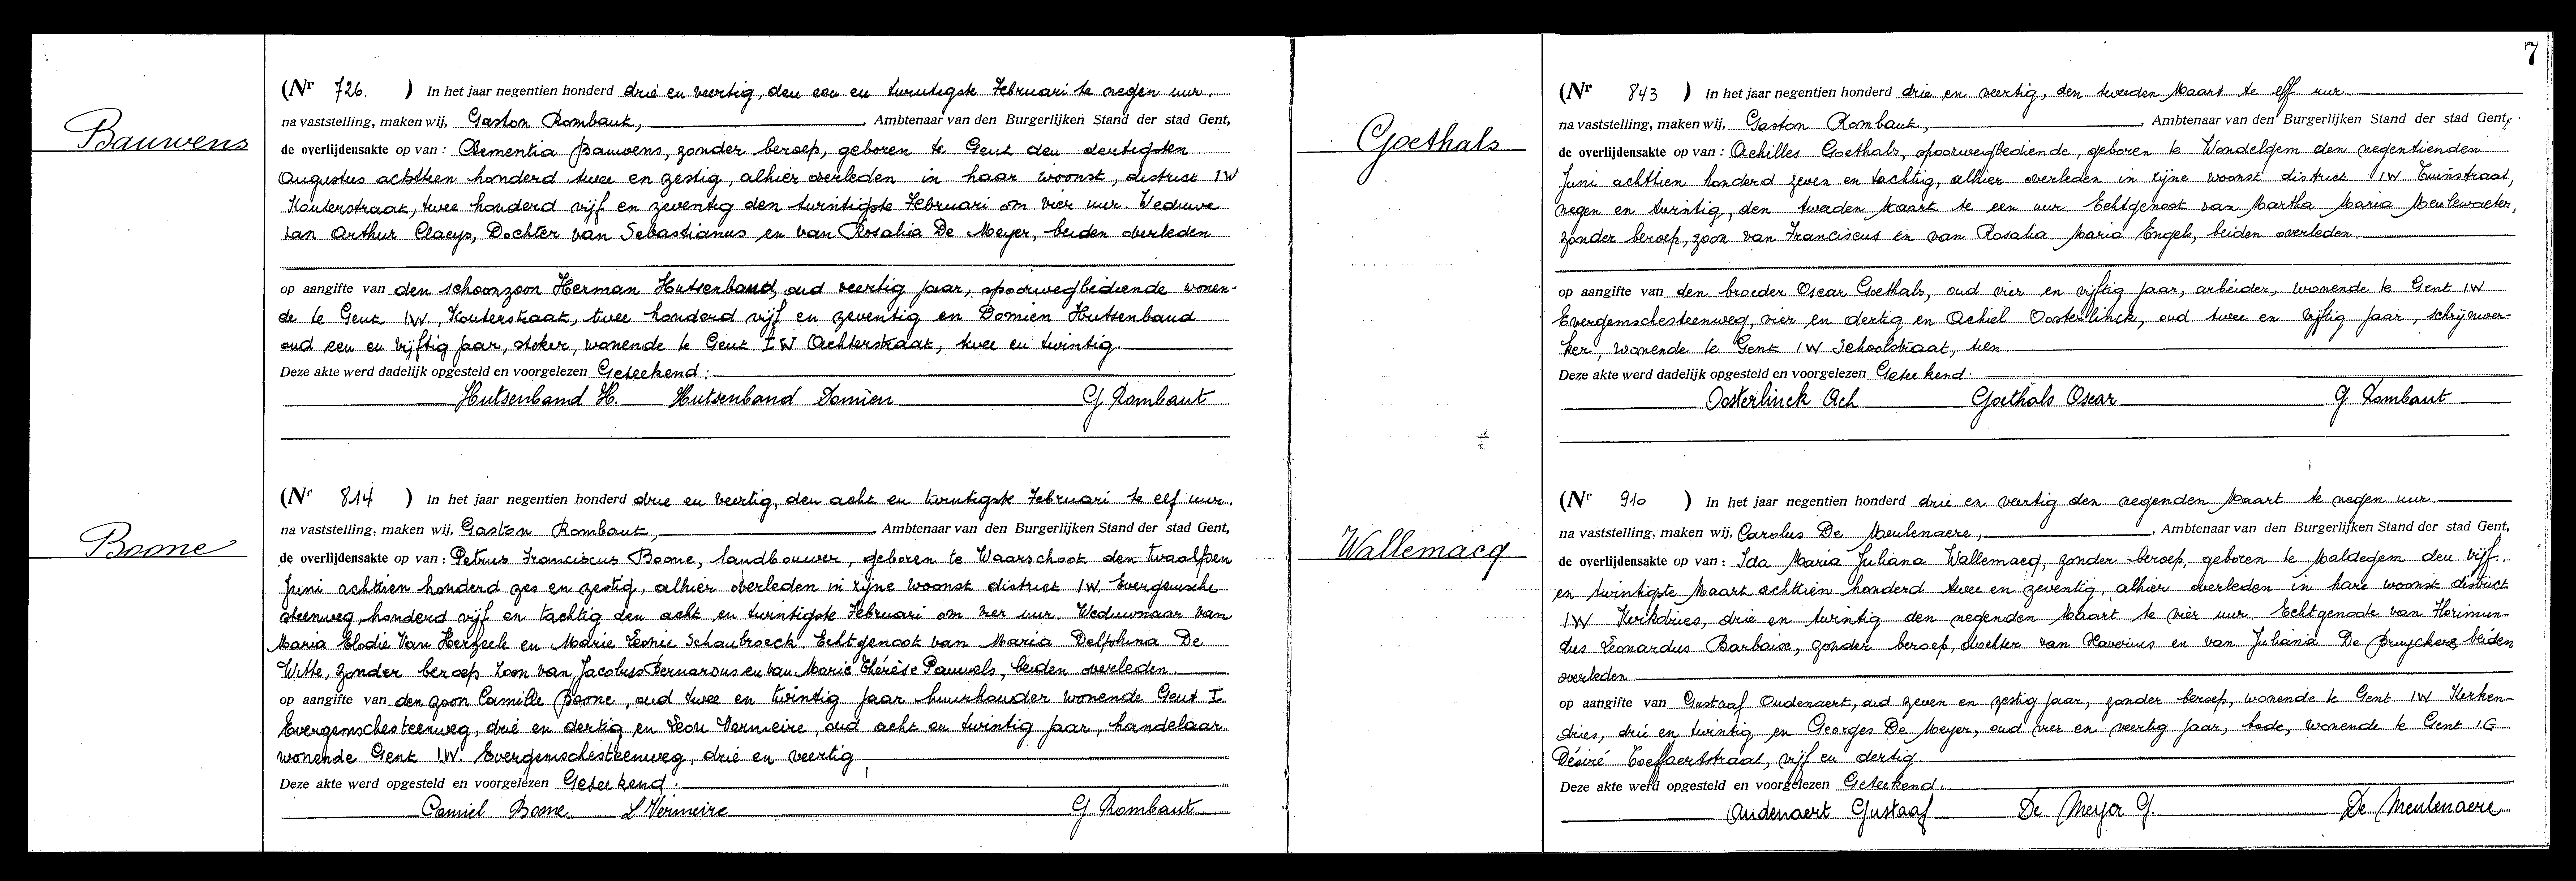 Bauwens
(Nr 726. ) In het jaar negentien honderd drie en veertig, den een en twintigste Februari te negen uur.
na vaststelling, maken wij, Gaston Rombaut, Ambtenaar van den Burgerlijken Stand der stad Gent,
de overlijdensakte op van : Clementia Bauwens, zonder beroep, geboren te Gent den dertigsten
Augustus achttien honderd twee en zestig, alhier overleden in haar woonst, district IW
Kouterstraat, twee honderd vijf en zeventig den twintigste Februari om vier uur. Weduwe
van Arthur Claeys, Dochter van Sebastianus en van Rosalia De Meyer, beiden overleden
op aangifte van den schoonzoon Herman Hutsenbaud, oud veertig jaar, spoorwegbediende wonen-
de te Gent IW, Kouterstraat, twee honderd vijf en zeventig en Domien Hutsenbaud
oud een en vijftig jaar, stoker, wonende te Gent IW Achterstraat, twee en twintig.
Deze akte werd dadelijk opgesteld en voorgelezen Geteekend :
Hutsenband H. Hutsenband Domien G Rombaut
Boone
(Nr 814 ) In het jaar negentien honderd drie en veertig, den acht en twintigste Februari te elf uur.
na vaststelling, maken wij, Gaston Rombaut, Ambtenaar van den Burgerlijken Stand der stad Gent,
de overlijdensakte op van : Petrus Franciscus Boone, landbouwer, geboren te Waarschoot den twaalfden
Juni achttien honderd zes en zestig, alhier overleden in zijne woonst district IW. Evergemsche
steenweg, honderd vijf en tachtig den acht en twintigste Februari om vier uur. Weduwnaar van
Maria Elodie Van Herzeele en Marie Leonie Schaubroeck. Echtgenoot van Maria Delphina De
Witte, zonder beroep zoon van Jacobus Bernardus en van Marie Thérèse Pauwels, beiden overleden.
op aangifte van den zoon Camille Boone, oud twee en twintig jaar huurhouder wonende Gent I
Evergemschesteenweg, drie en dertig en Leon Vermeire, oud acht en twintig jaar, handelaar
wonende Gent IW. Evergemschesteenweg, drie en veertig
Deze akte werd opgesteld en voorgelezen Geteekend :
Camiel Boone L Vermeire G Rombaut
7
Goethals
(Nr 843 ) In het jaar negentien honderd drie en veertig, den tweeden Maart te elf uur
na vaststelling, maken wij, Gaston Rombaut, Ambtenaar van den Burgerlijken Stand der stad Gent,
de overlijdensakte op van : Achilles Goethals, spoorwegbediende, geboren te Wondelgem den negentienden
Juni achttien honderd zeven en tachtig, alhier overleden in zijne woonst district IW Tuinstraat,
negen en twintig, den tweeden Maart te een uur. Echtgenoot van Martha Maria Meulewaeter,
zonder beroep, zoon van Franciscus en van Rosalia Maria Engels, beiden overleden
op aangifte van den broeder Oscar Goethals, oud vier en vijftig jaar, arbeider, wonende te Gent IW
Evergemschesteenweg, vier en dertig en Achiel Oosterlinck, oud twee en vijftig jaar, schrijnwer-
ker, wonende te Gent IW Schoolstraat, tien
Deze akte werd dadelijk opgesteld en voorgelezen Geteekend :
Oosterlinck Ach Goethals Oscar G Rombaut
Wallemacq
(Nr 910 ) In het jaar negentien honderd drie en veertig den negenden Maart te negen uur
na vaststelling, maken wij, Carolus De Meulenaere, Ambtenaar van den Burgerlijken Stand der stad Gent,
de overlijdensakte op van : Ida Maria Juliana Wallemacq, zonder beroep, geboren te Maldegem den vijf
en twintigste Maart achttien honderd twee en zeventig, alhier overleden in hare woonst district
IW Kerkdries, drie en twintig den negenden Maart te vier uur. Echtgenoote van Florimun-
dus Leonardus Barbaix, zonder beroep, dochter van Xaverius en van Juliana De Bruyckere, beiden
overleden
op aangifte van Gustaaf Oudenaert, oud zeven en zestig jaar, zonder beroep, wonende te Gent IW Kerken-
dries, drie en twintig en Georges De Meyer, oud vier en veertig jaar, bode, wonende te Gent IG
Désiré Toeffaertstraat, vijf en dertig
Deze akte werd opgesteld en voorgelezen Geteekend.
Oudenaert Gustaaf De Meyer G. De Meulenaere